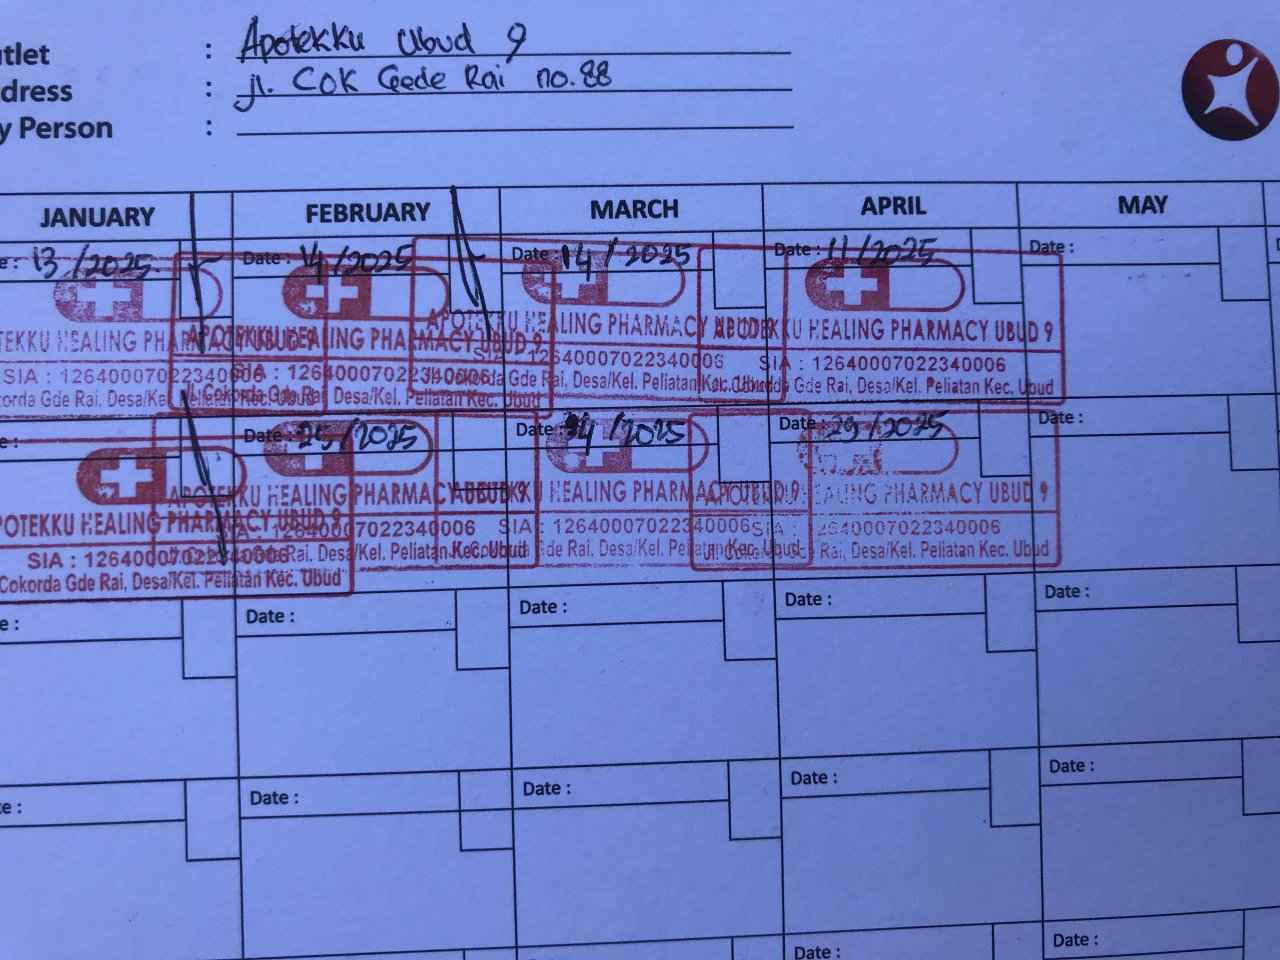 utlet : Apotekku Ubud 9
dress : jl. COK Gede Rai no. 88
y Person :
JANUARY FEBRUARY MARCH APRIL MAY
e : 13 /2025. Date : 14/2025 Date : 14 / 2025 Date : 11/2025 Date :
TEKKU HEALING PHARMACY UBUD 9 APOTEKKU HEALING PHARMACY UBUD 9 APOTEKKU HEALING PHARMACY UBUD 9 APOTEKKU HEALING PHARMACY UBUD 9
SIA : 12640007022340006 SIA : 12640007022340006 SIA : 12640007022340006 SIA : 12640007022340006
okorda Gde Rai, Desa/Kel. Peliatan Kec. Ubud Jl. Cokorda Gde Rai, Desa/Kel. Peliatan Kec. Ubud Jl. Cokorda Gde Rai, Desa/Kel. Peliatan Kec. Ubud Jl. Cokorda Gde Rai, Desa/Kel. Peliatan Kec. Ubud
e : Date : 25/2025 Date : 24 /2025 Date : 29/2025 Date :
POTEKKU HEALING PHARMACY UBUD 9 APOTEKKU HEALING PHARMACY UBUD 9 APOTEKKU HEALING PHARMACY UBUD 9 APOTEKKU HEALING PHARMACY UBUD 9
SIA : 12640007022340006 SIA : 12640007022340006 SIA : 12640007022340006 SIA : 12640007022340006
Cokorda Gde Rai, Desa/Kel. Peliatan Kec. Ubud Rai, Desa/Kel. Peliatan Kec. Ubud Gde Rai, Desa/Kel. Peliatan Kec. Ubud Rai, Desa/Kel. Peliatan Kec. Ubud
e : Date : Date : Date : Date :
te : Date : Date : Date : Date :
Date :